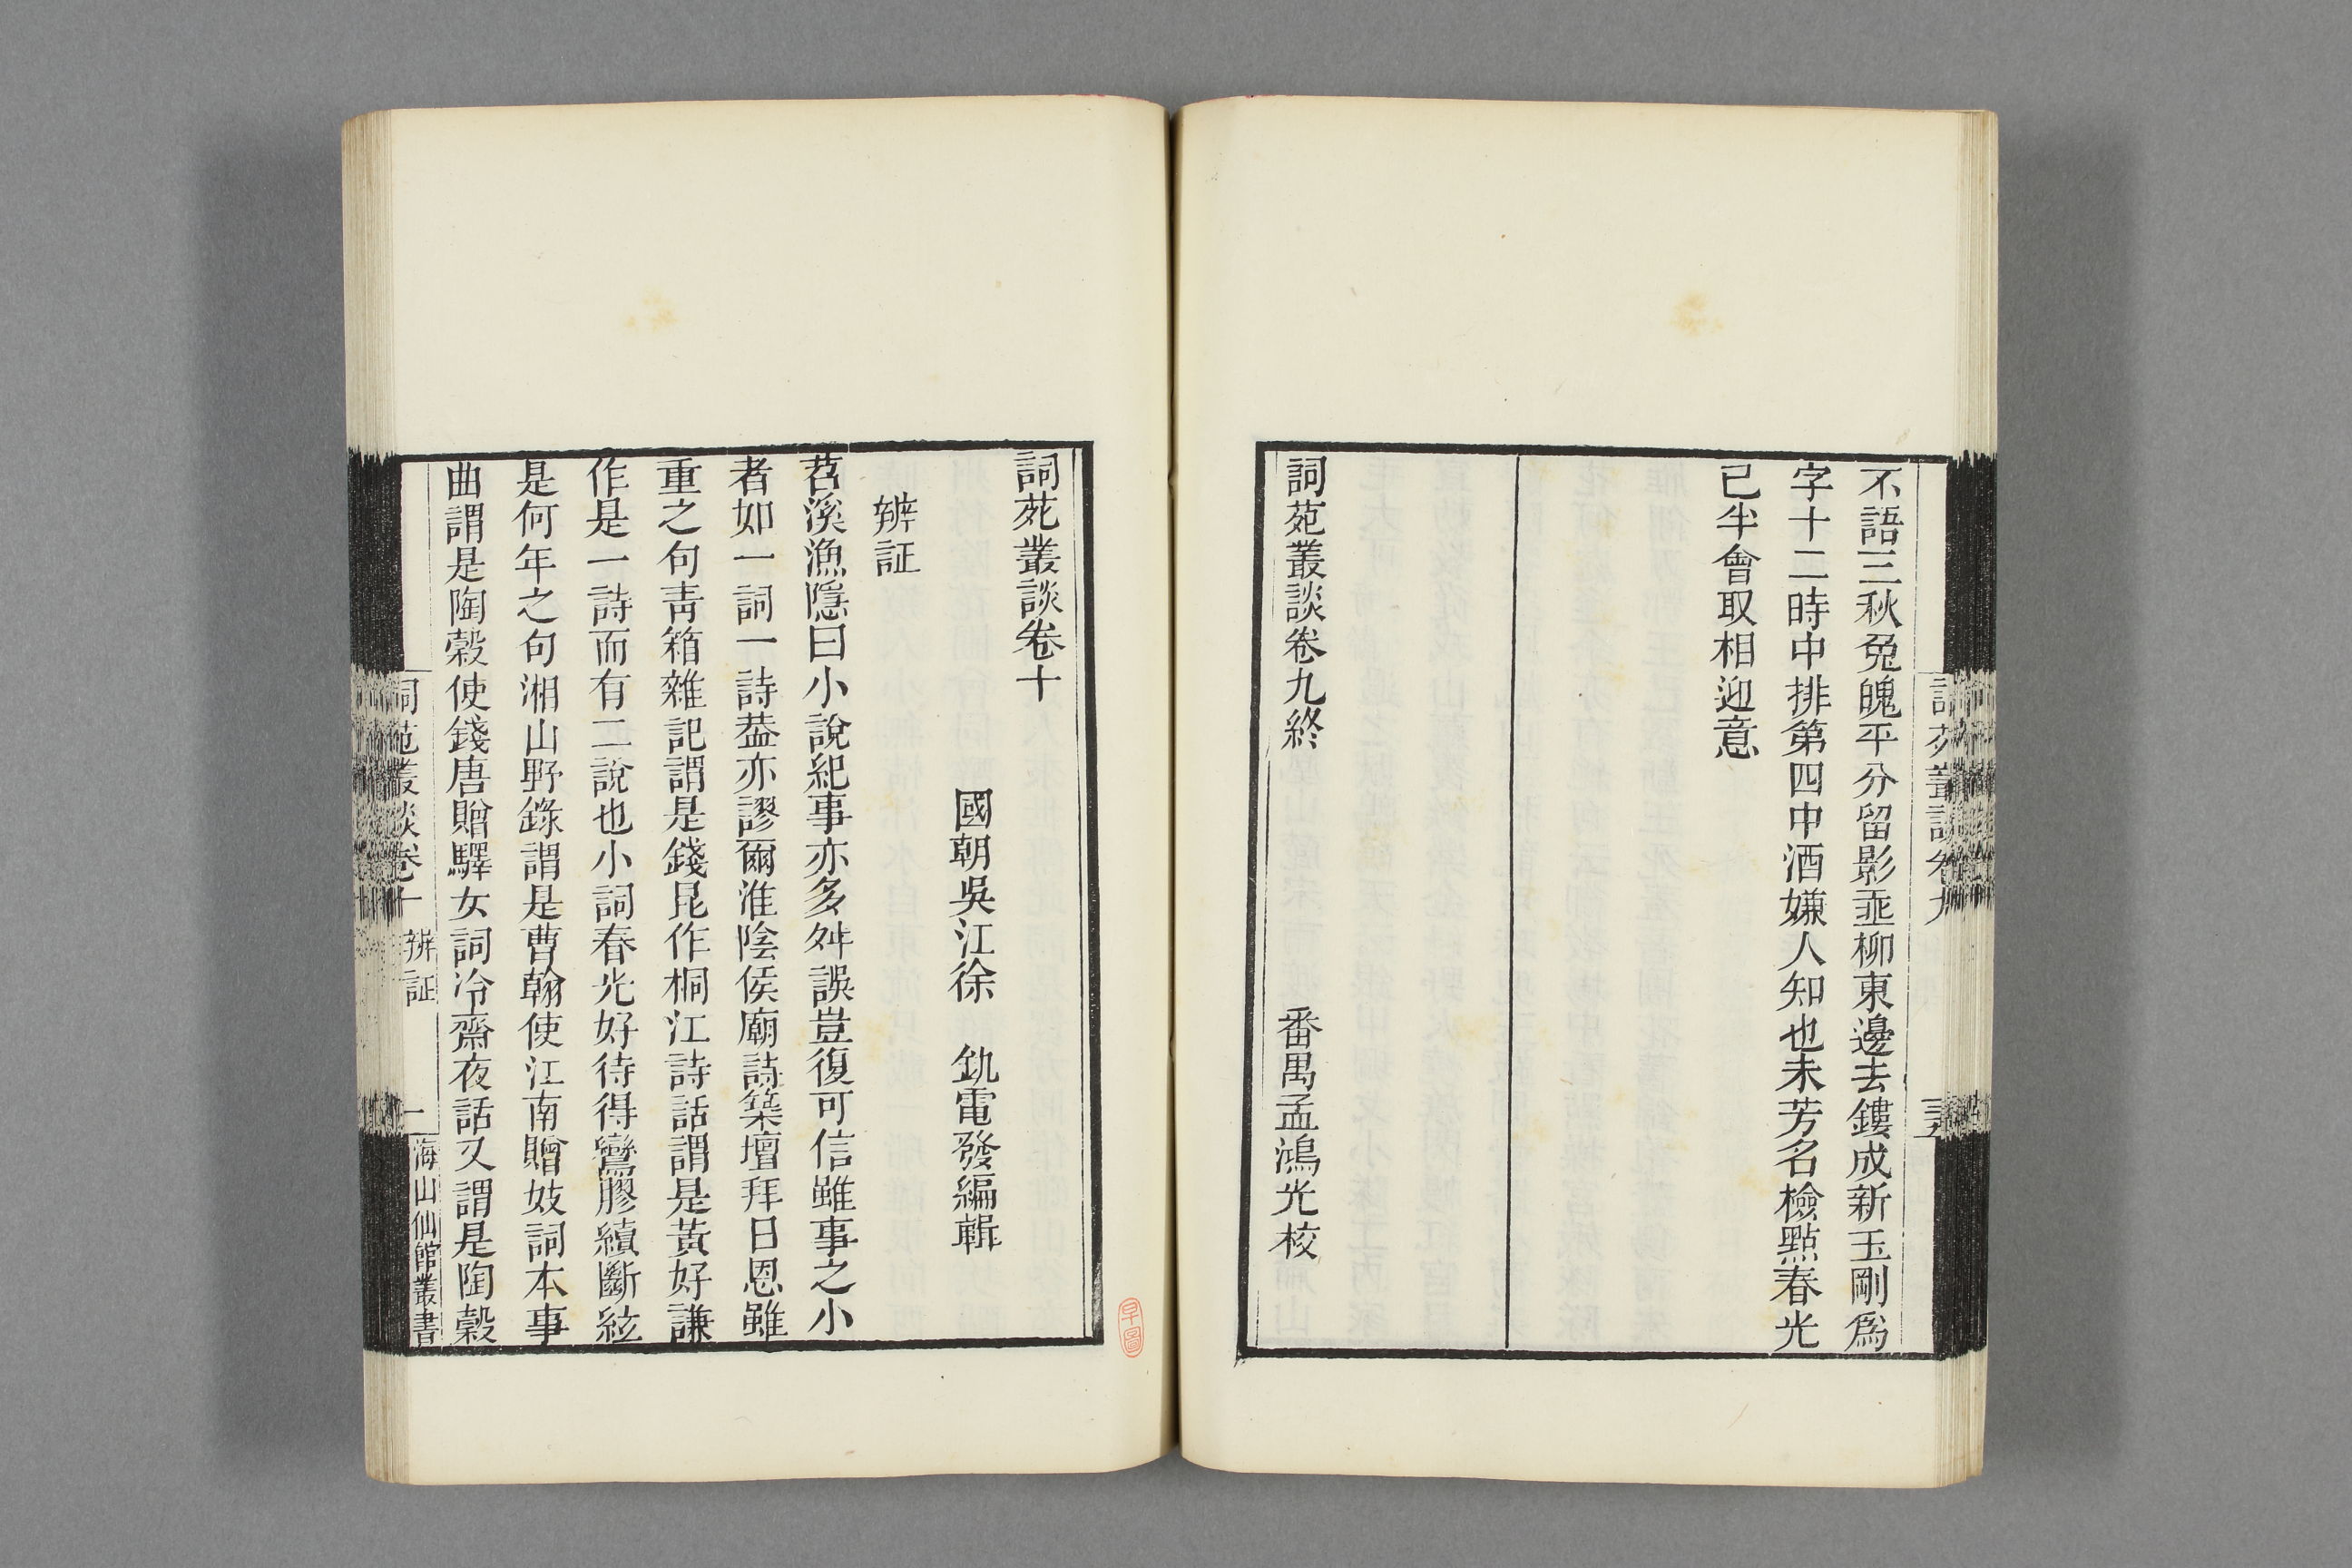 不語三秋兔魄平分留影亚柳東邊去鏤成新玉剛爲
字十二時中排第四中酒嫌人知也未芳名檢點春光
已半會取相迎意
詞苑叢談卷九終
番禺孟鴻光校
詞苑叢談卷十
國朝吳江徐 釚電發編輯
辨証
苕溪漁隱曰小說紀事亦多舛誤豈復可信雖事之小
者如一詞一詩葢亦謬爾淮陰侯廟詩築壇拜日恩雖
重之句靑箱雜記謂是錢昆作桐江詩話謂是黃好謙
作是一詩而有二說也小詞春光好待得鸞膠續斷絃
是何年之句湘山野錄謂是曹翰使江南贈妓詞本事
曲謂是陶穀使錢唐贈驛女詞冷齋夜話又謂是陶穀
詞苑叢談卷十 辨証 一 海山仙館叢書
早圖